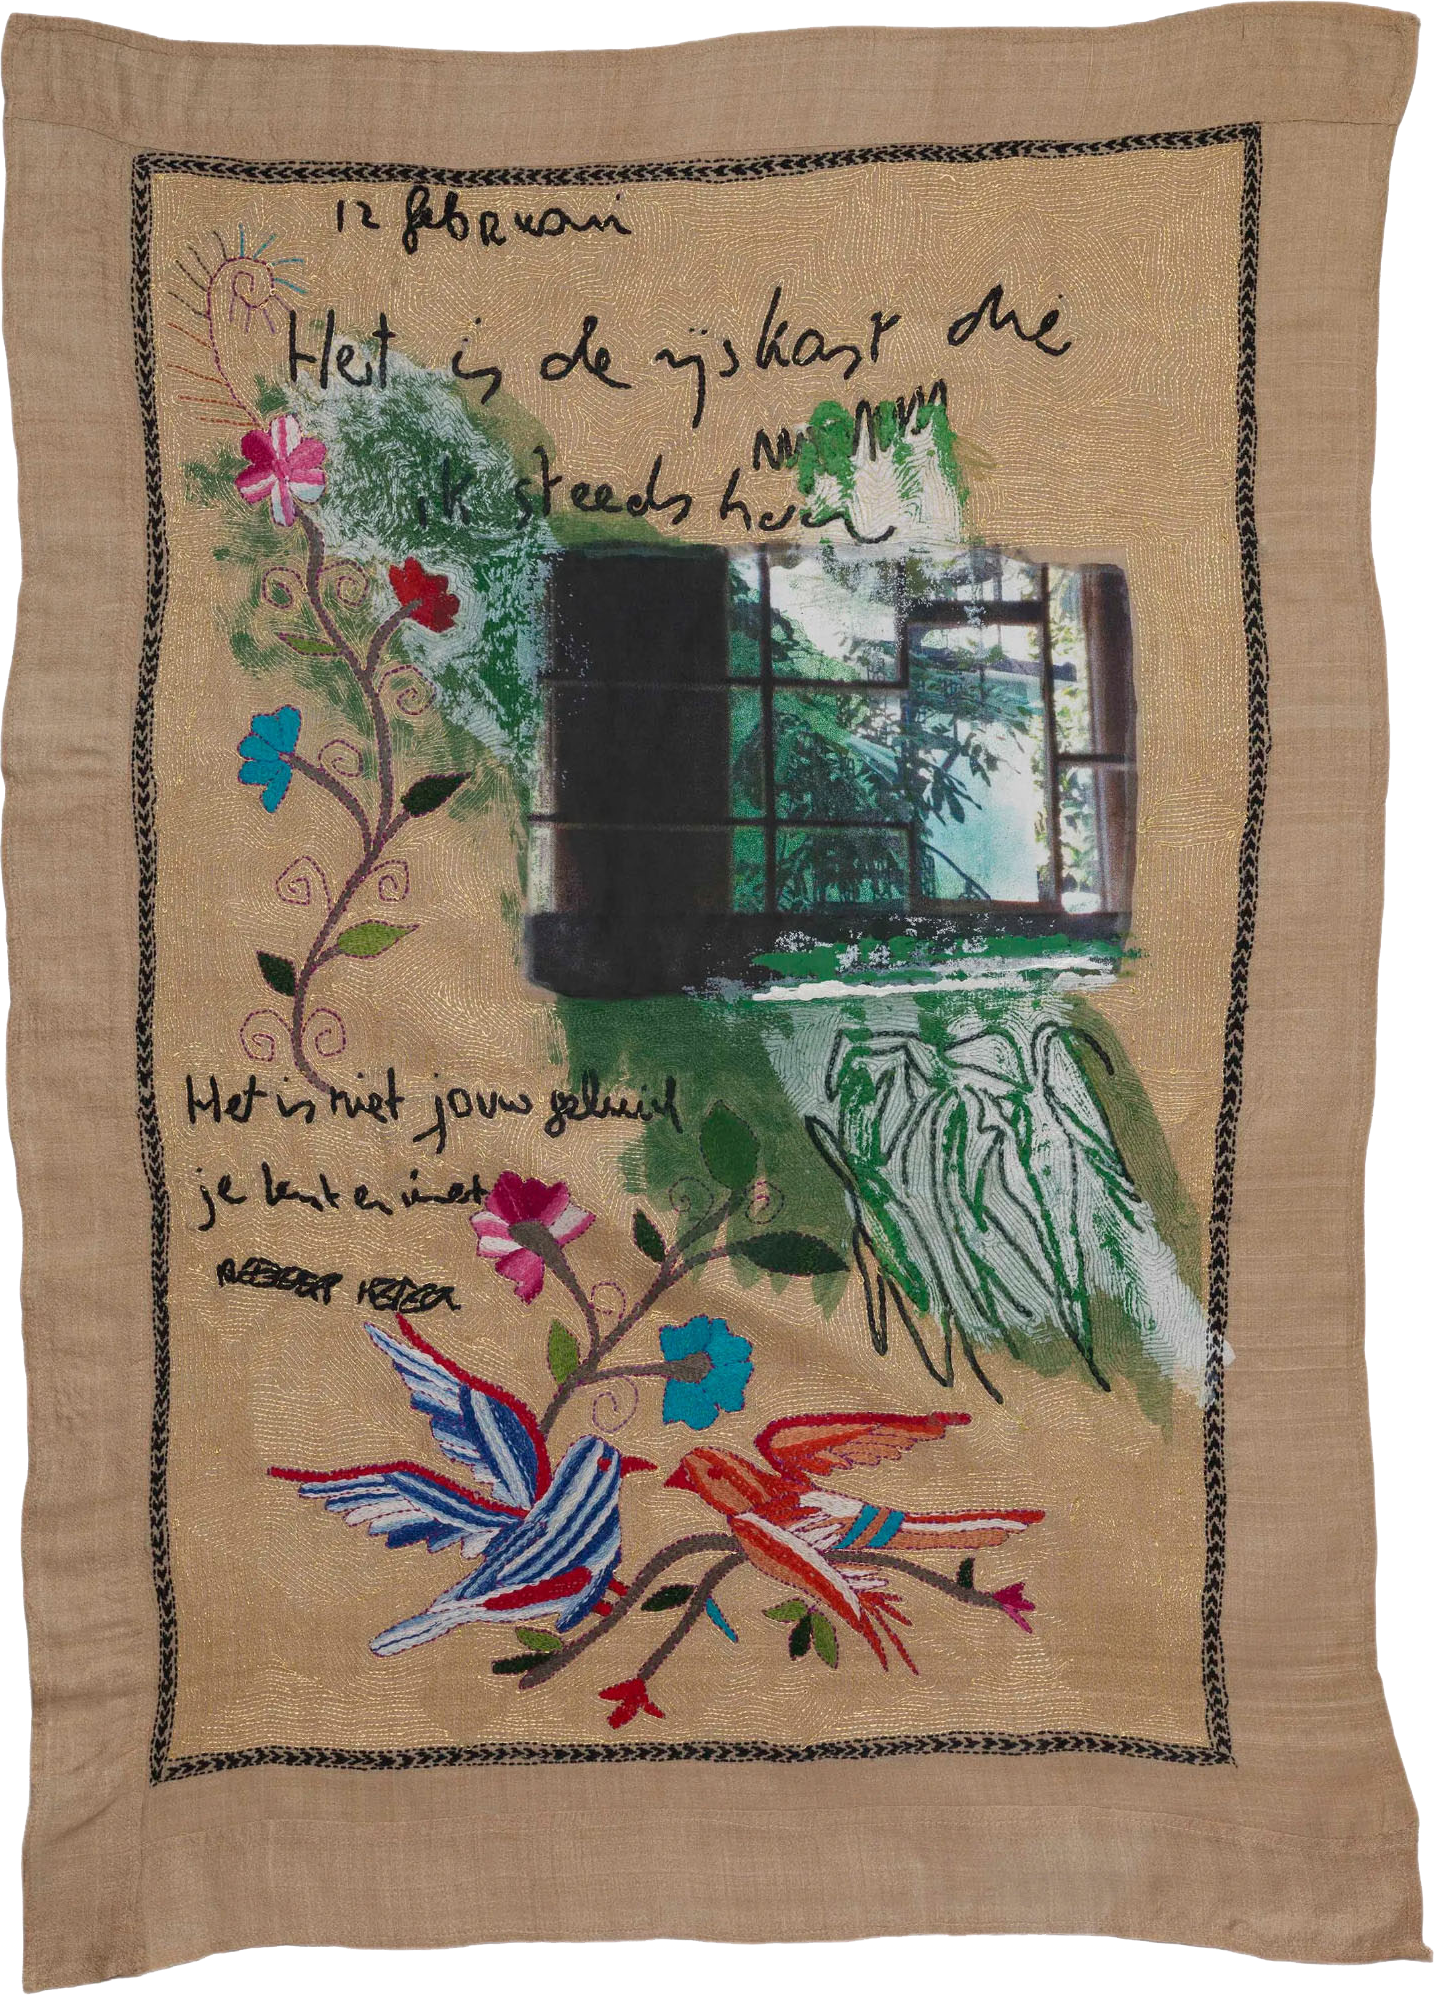 12 februari
Het is de ijskast die
ik steeds hoor
Het is niet jouw geluid
je bent er niet